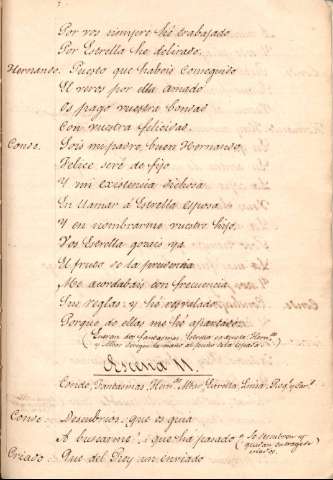 Por vos siempre hé trabajado
Por Estrella he delirado.
Hernando. Puesto que habeis conseguido
El veros por ella amado
Os pago vuestra bondad
Con vuestra felicidad.
Conde. Sois mi padre, buen Hernando
Felice seré de fijo
Y mi existencia dichosa
En llamar á Estrella esposa
Y en nombrarme vuestro hijo.
Vos Estrella gozais ya
El fruto de la prudencia
Me acordabais con frecuencia
Sus reglas y hé respetado
Porque de ellas me
(Entran dos fantasmas, Estrella se asusta, Hern.do
y Mhor la mano al puño de la espada.)
Escena 11.
Conde, Fantasmas, Hern.do Mhor Estrella Luisa,
Conde. Descubrios, que os guia
A buscarme? que há pasado (Se
Criado. Que del Rey un enviado